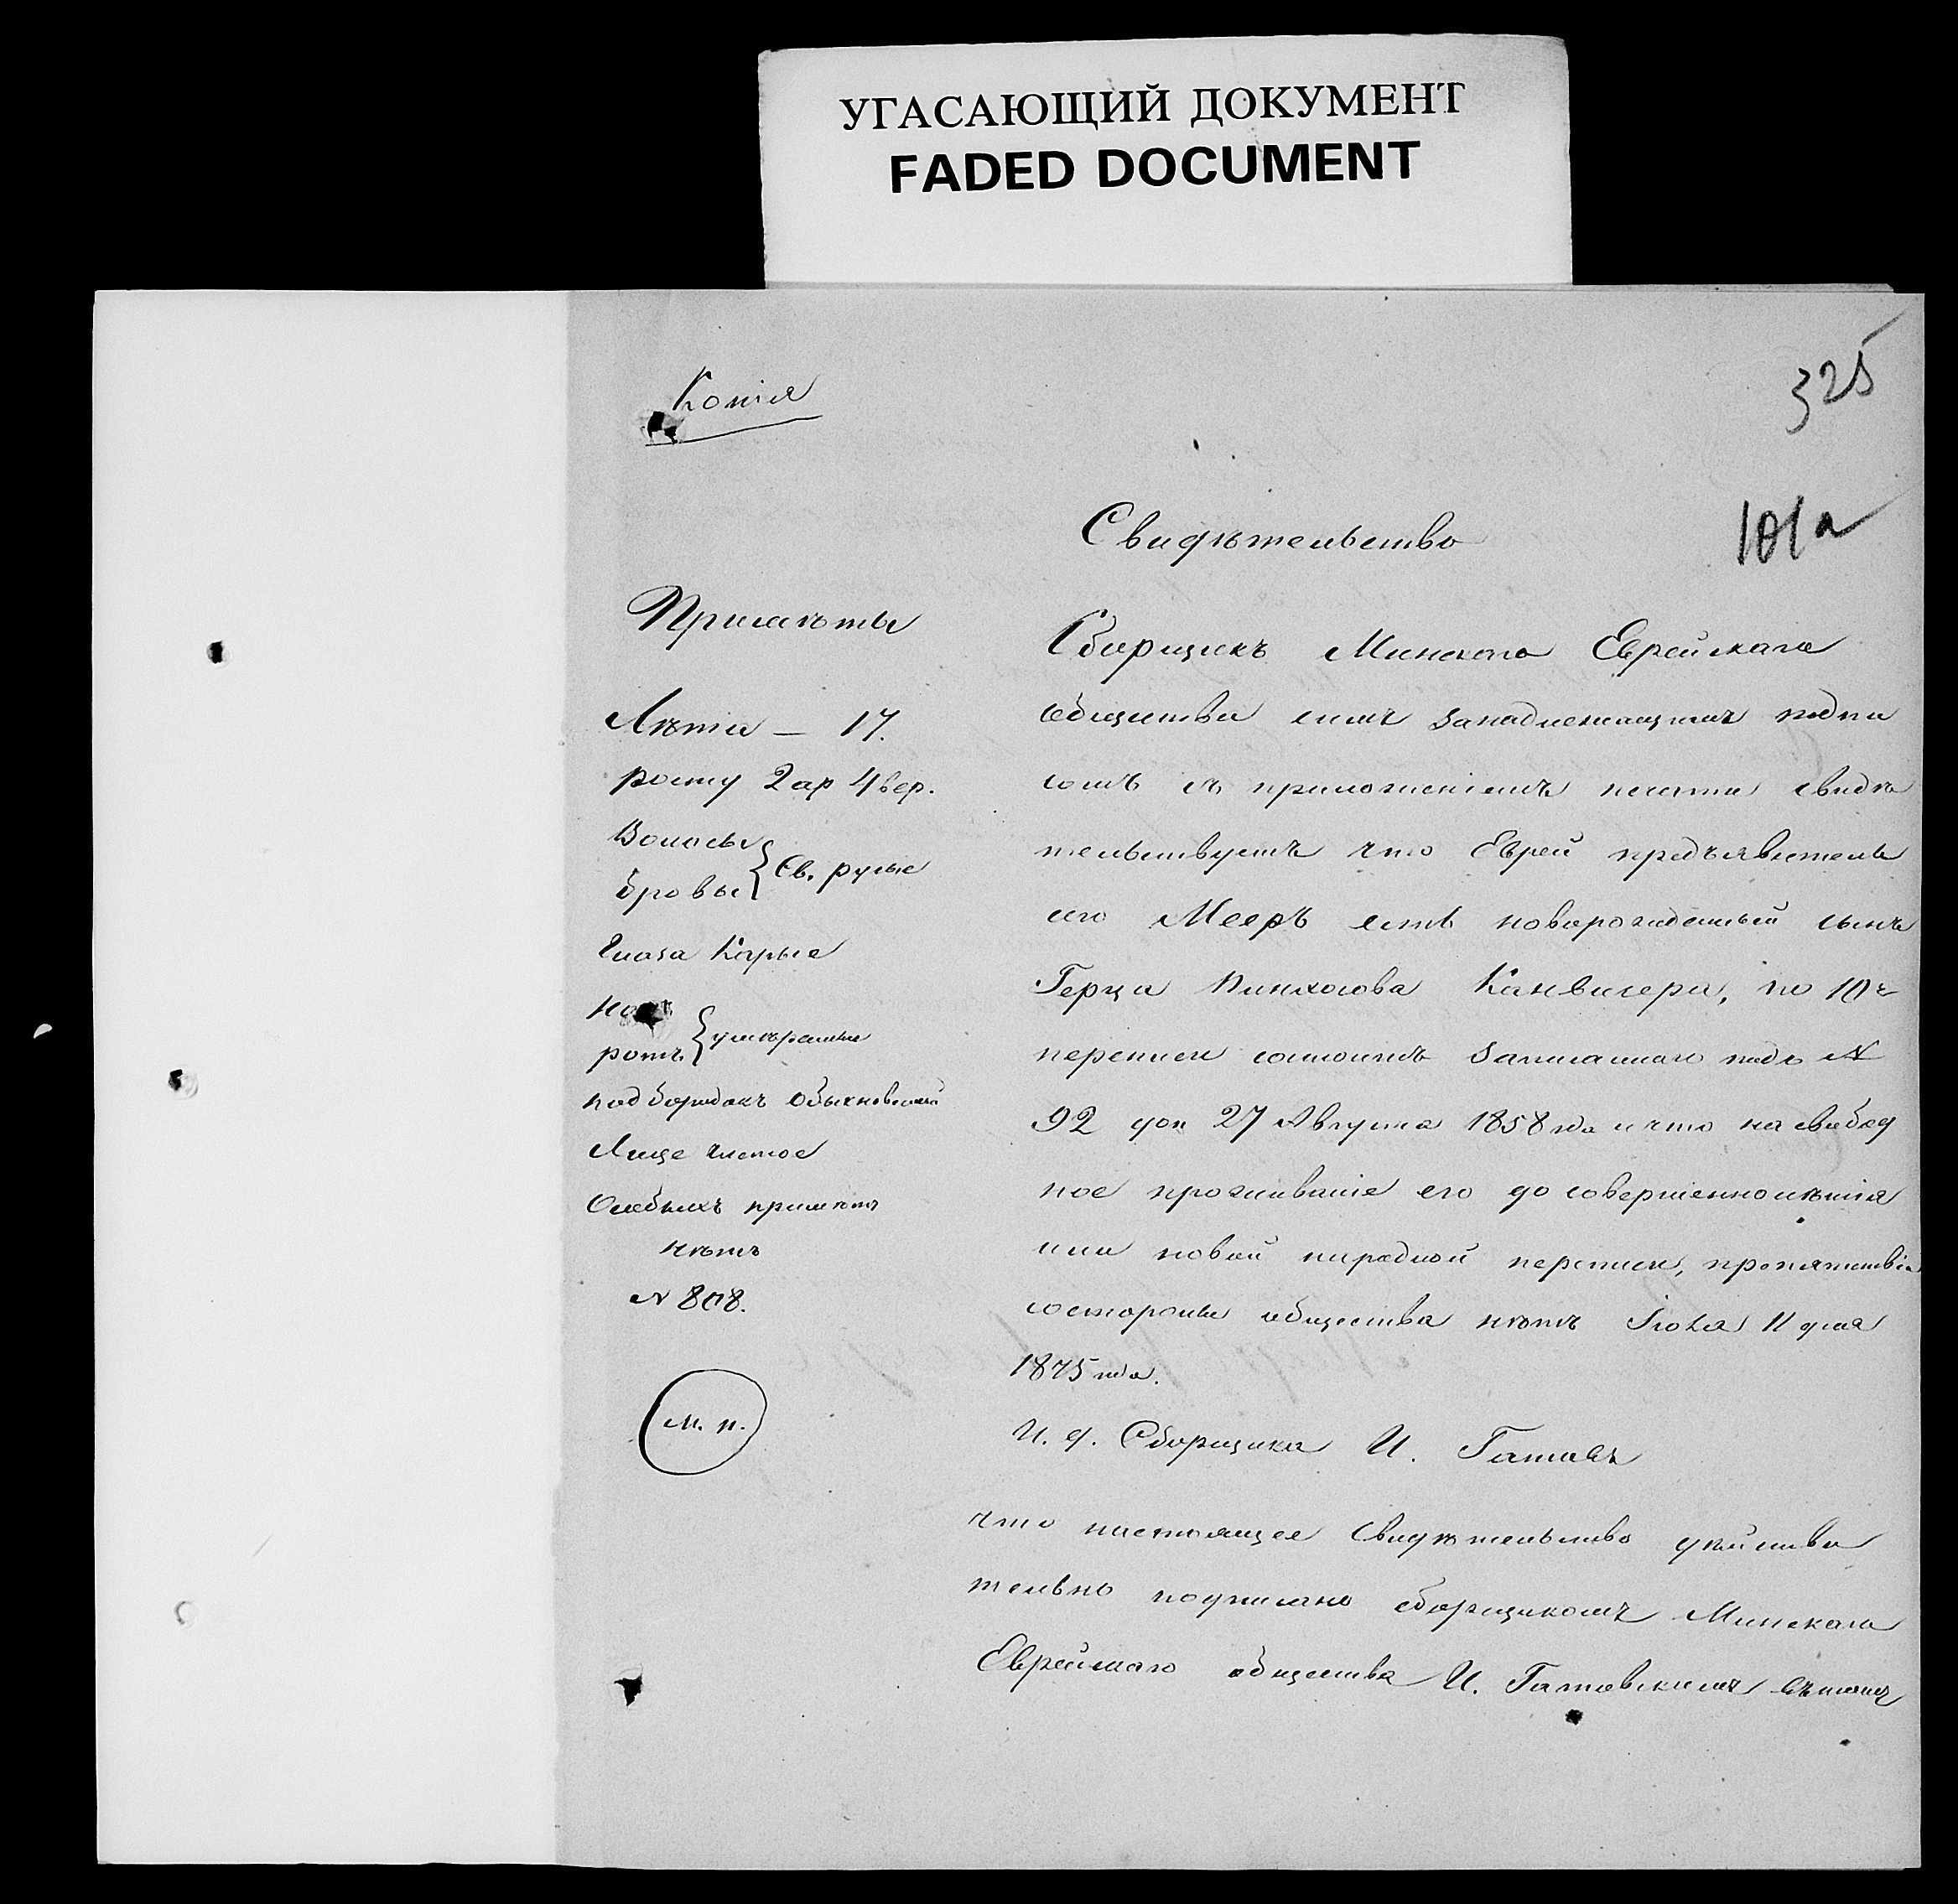 УГАСАЮЩИЙ ДОКУМЕНТ
FADED DOCUMENT
325
Копія
101а
Свидѣтельство
Примѣты
Лѣта — 17.
росту 2 ар 4 вер.
Волосы
брови } Св. русые
Глаза Карые
ротъ } умѣренные
подбородокъ обыкновенный
Лице чистое
Особыхъ примѣтъ
нѣтъ
N 808.
м. п.
Сборщикъ Минскаго Еврейскаго
общества симъ занадлежащимъ подпи
сомъ съ приложеніемъ печати свидѣ
тельствуетъ что Еврей предъявитель
сего Мееръ есть новорожденный сынъ
Герца Пинхосова Канвисера, по 10й
переписи состоитъ записаннаго подъ N
92 доп 27 Августа 1858 года и что на свобод
ное проживаніе его до совершеннолѣтія
или новой народной переписи, препятствія
состороны общества нѣтъ Іюля 11 дня
1875 года.
И. д. Сборщика И. Гатовъ
что настоящее Свидѣтельство дѣйстви
тельно подписано сборщикомъ Минскаго
Еврейскаго общества И. Гатовскимъ